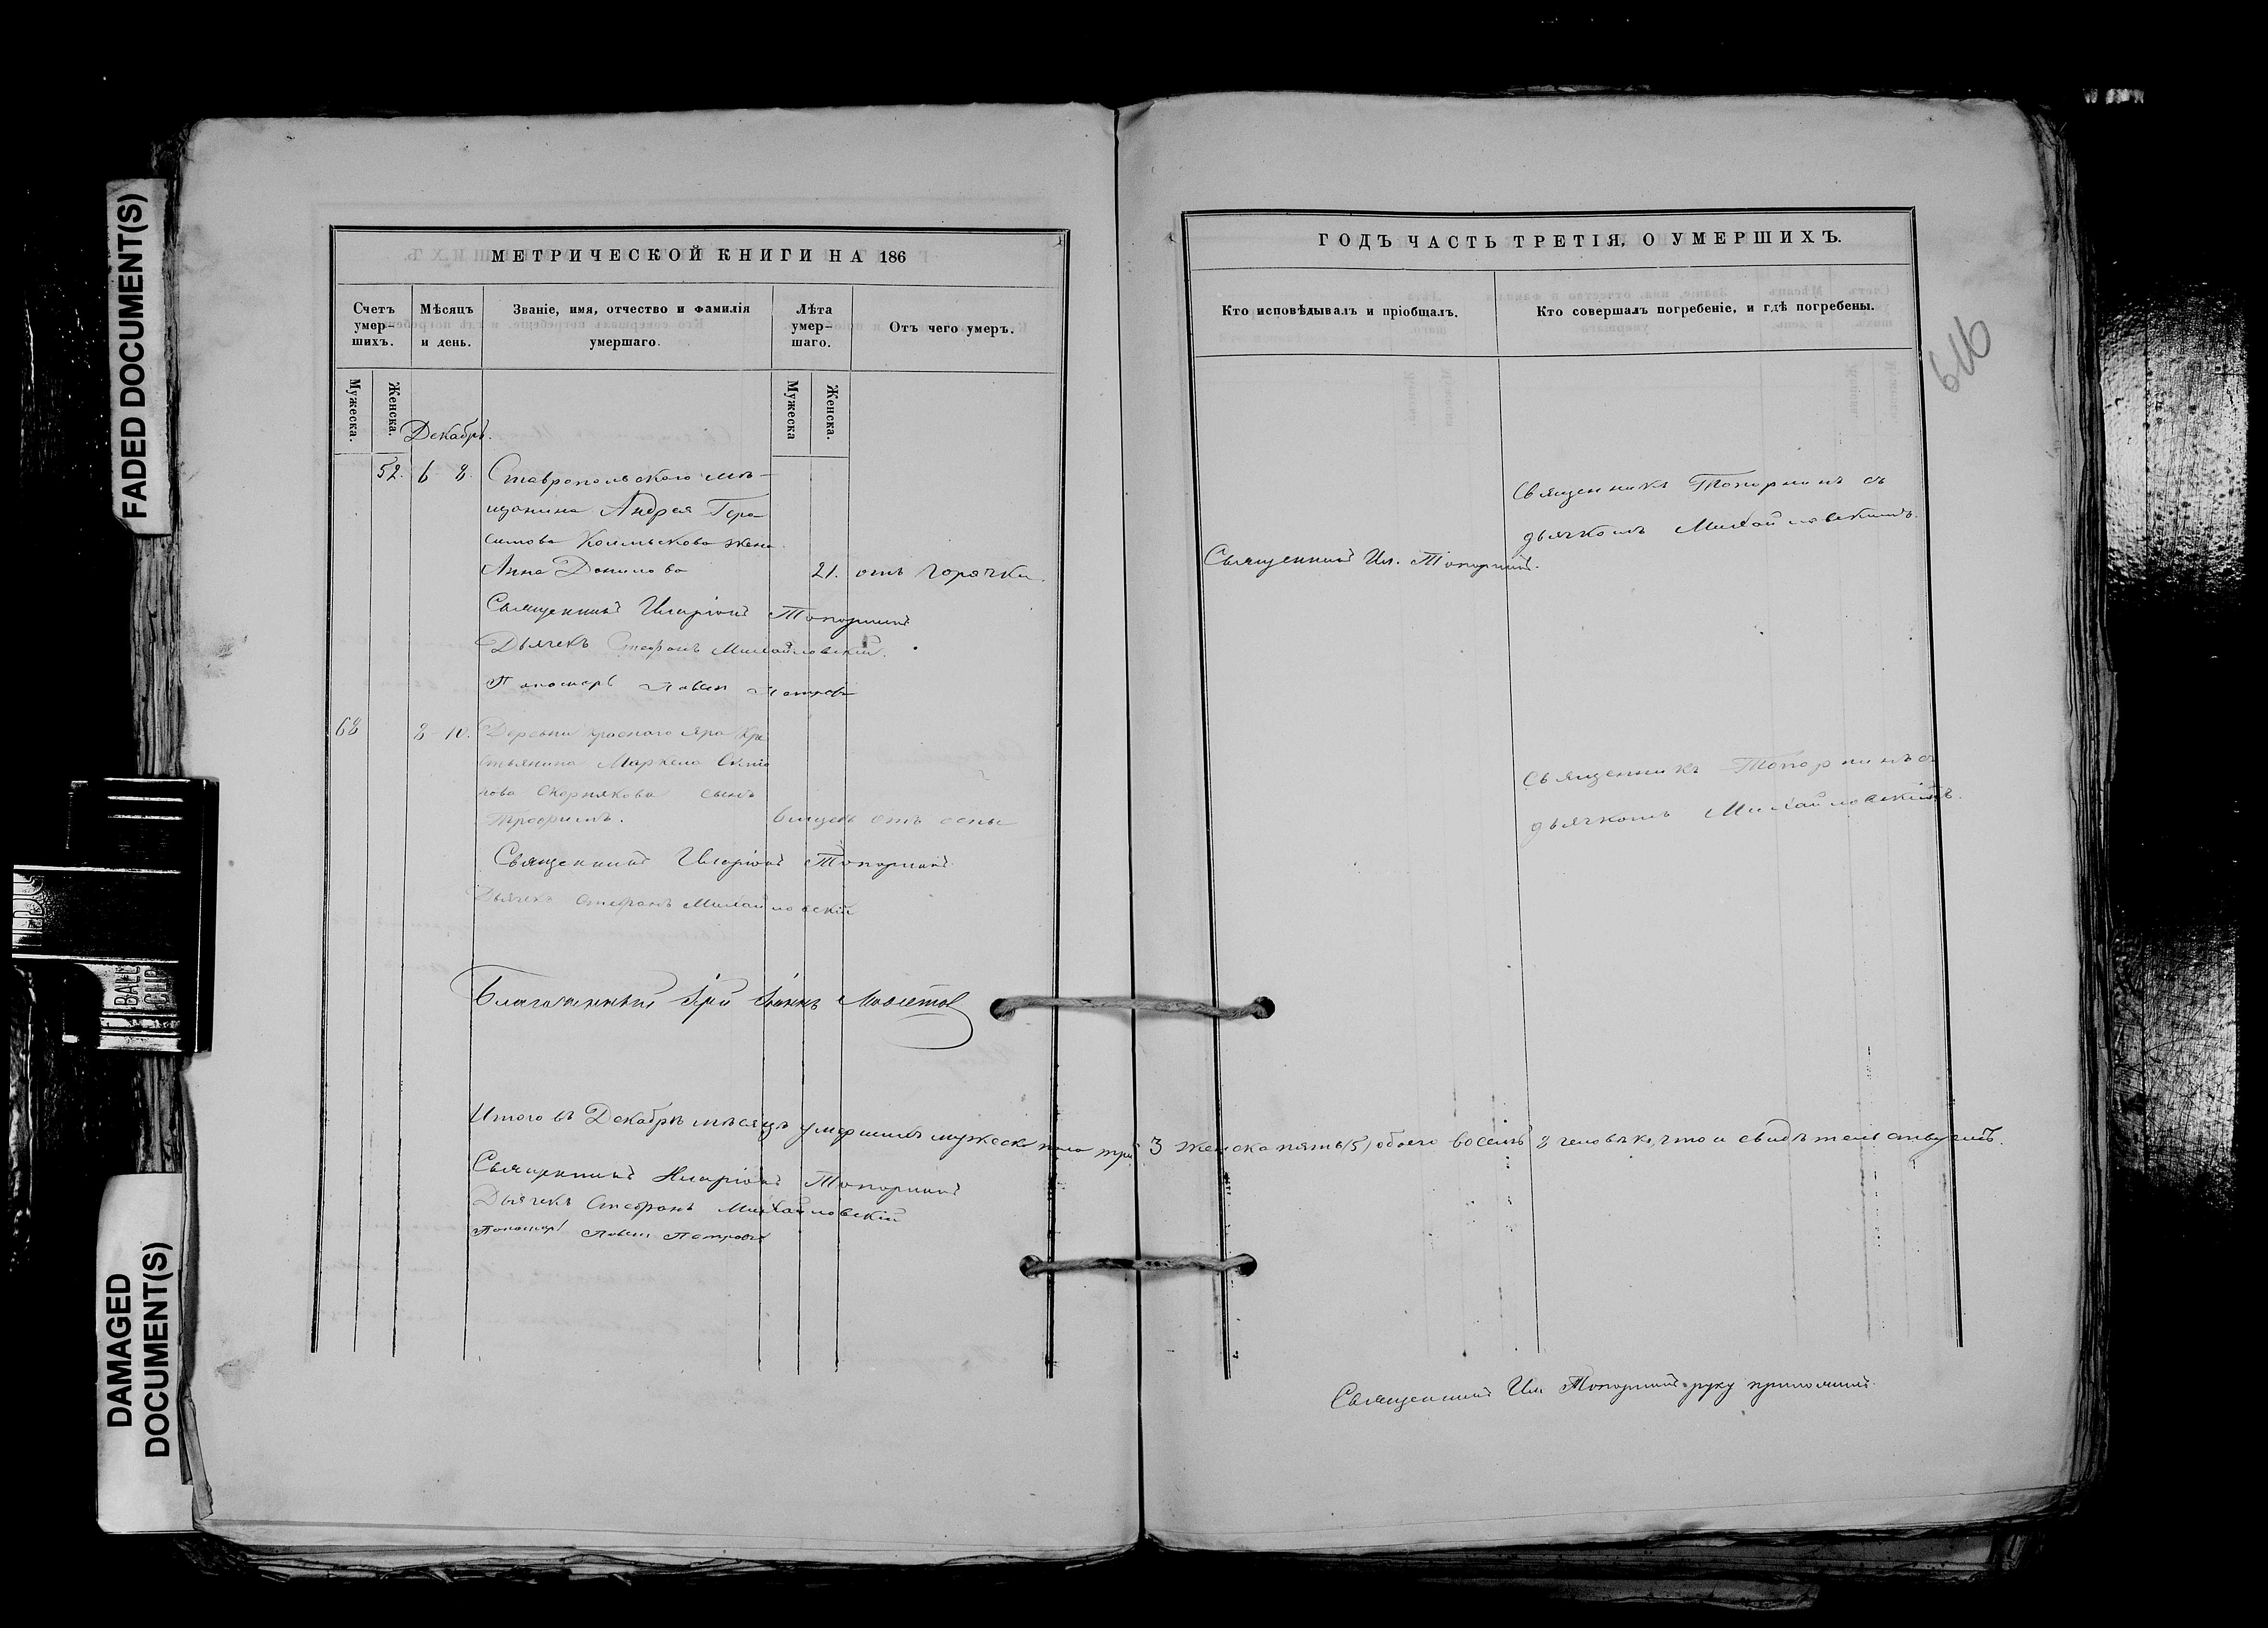 FADED DOCUMENT(S)
DAMAGED
DOCUMENT(S)
BALL
CLIP
МЕТРИЧЕСКОЙ КНИГИ НА 186
Счетъ умер-шихъ.
Мѣсяцъ и день.
Званіе, имя, отчество и фамилія умершаго.
Лѣта умер-шаго.
Отъ чего умеръ.
Мужеска.
Женска.
Мужеска
Женска.
Декабрь.
52. 6 8. Ставропольскаго мѣ-
щанина Андрея Гера
симова жена
Анна Данилова 21. отъ горячки.
Священникъ Иларіонъ Топорнинъ
Дьячекъ Стефанъ Михайловскій.
Пономарь Павелъ Петровъ
68 8 10. Деревни Краснаго Яра Кре
стьянина Маркела
Скорнякова сынъ
Трофимъ. отъ оспы
Священникъ Иларіонъ Топорнинъ
Дьячекъ Стефанъ Михайловскій
Благочинный Іоаннъ
Итого въ Декабрѣ мѣсяцѣ умершихъ мужеска пола три 3 женска пять (5) обоего восемь 8 человѣкъ, что и свидѣтельствуемъ.
Священникъ Иларіонъ Топорнинъ
Дьячекъ Стефанъ Михайловскій
Пономарь Павелъ Петровъ
ГОДЪ ЧАСТЬ ТРЕТІЯ, О УМЕРШИХЪ.
Кто исповѣдывалъ и пріобщалъ.
Кто совершалъ погребеніе, и гдѣ погребены.
616
Священникъ Топорнинъ съ
дьячкомъ Михайловскимъ.
Священникъ Ил. Топорнинъ.
Священникъ Топорнинъ съ
дьячкомъ Михайловскимъ.
Священникъ Ил Топорнинъ руку приложилъ.